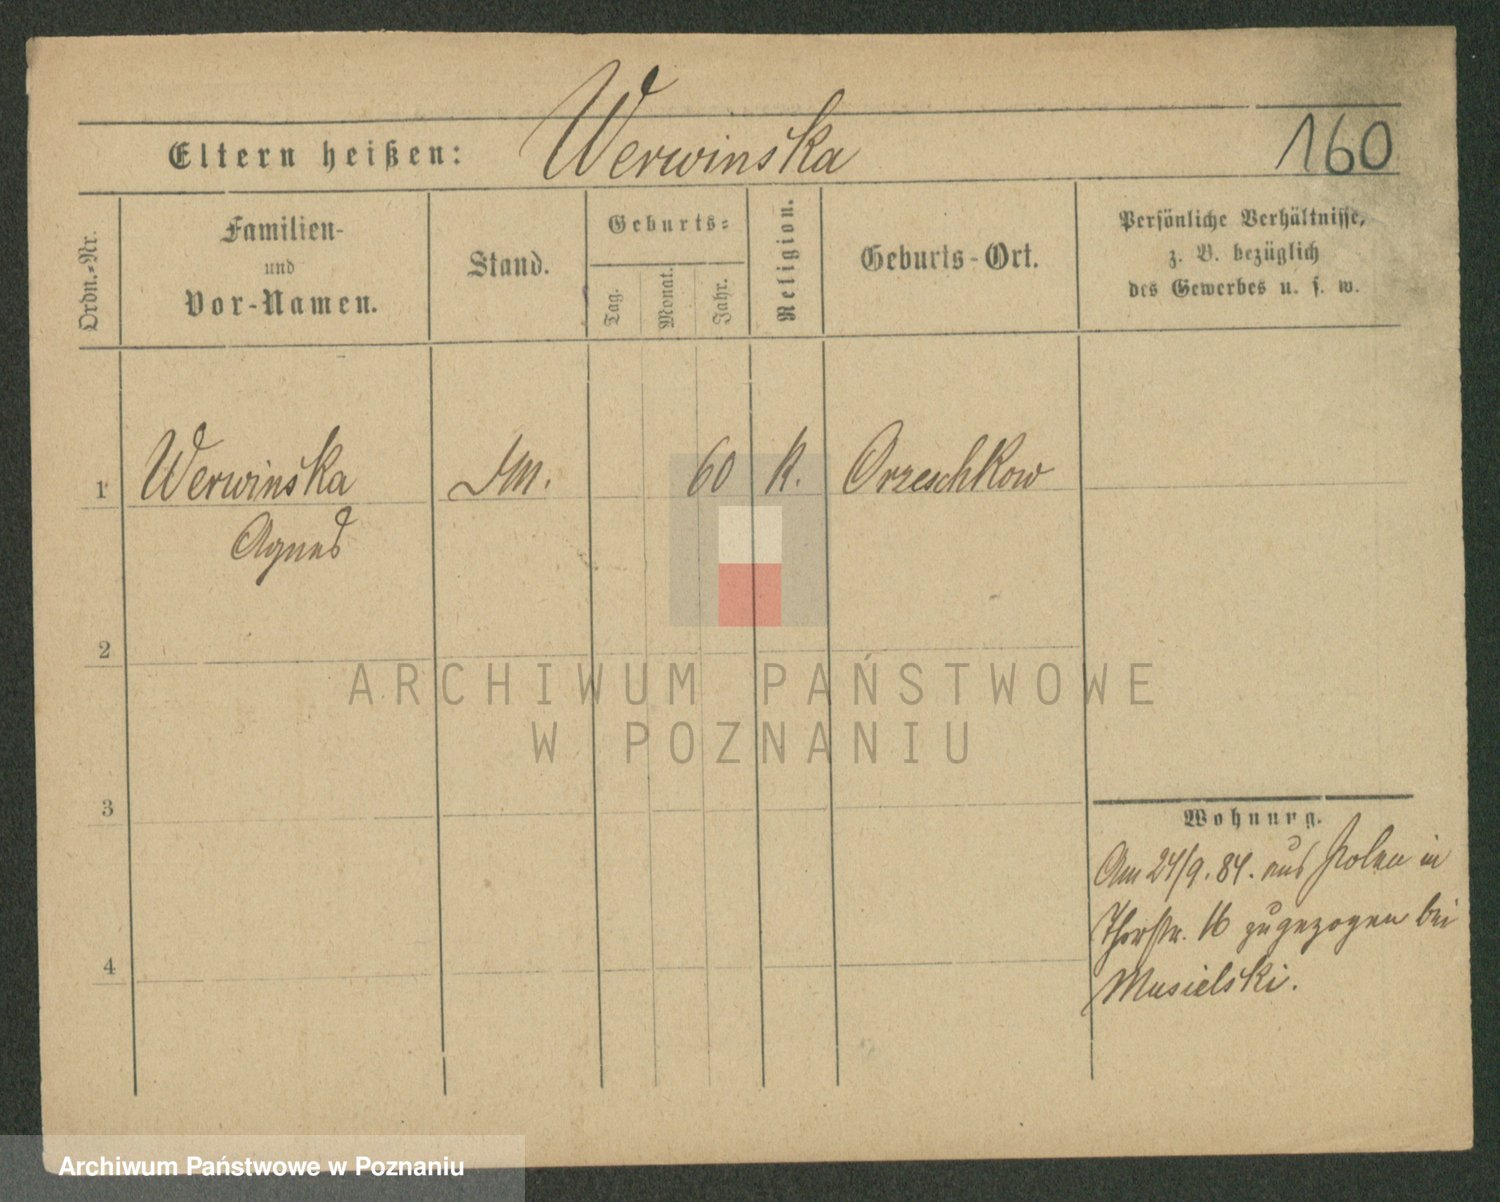 Eltern heißen: Werwinska 160
Ordn.-Nr.
Familien-
und
Vor-Namen.
Stand.
Geburts-
Tag.
Monat.
Jahr.
Religion.
Geburts-Ort.
Persönliche Verhältnisse,
z. B. bezüglich
des Gewerbes u. s. w.
1 Werwinska 60 k. Orzeschkow
Agnes
2
3
4
Wohnung.
Am 24/9. 84. aus Polen in
Thorstr. 16 zugezogen bei
Musielski.
ARCHIWUM PAŃSTWOWE
W POZNANIU
Archiwum Państwowe w Poznaniu